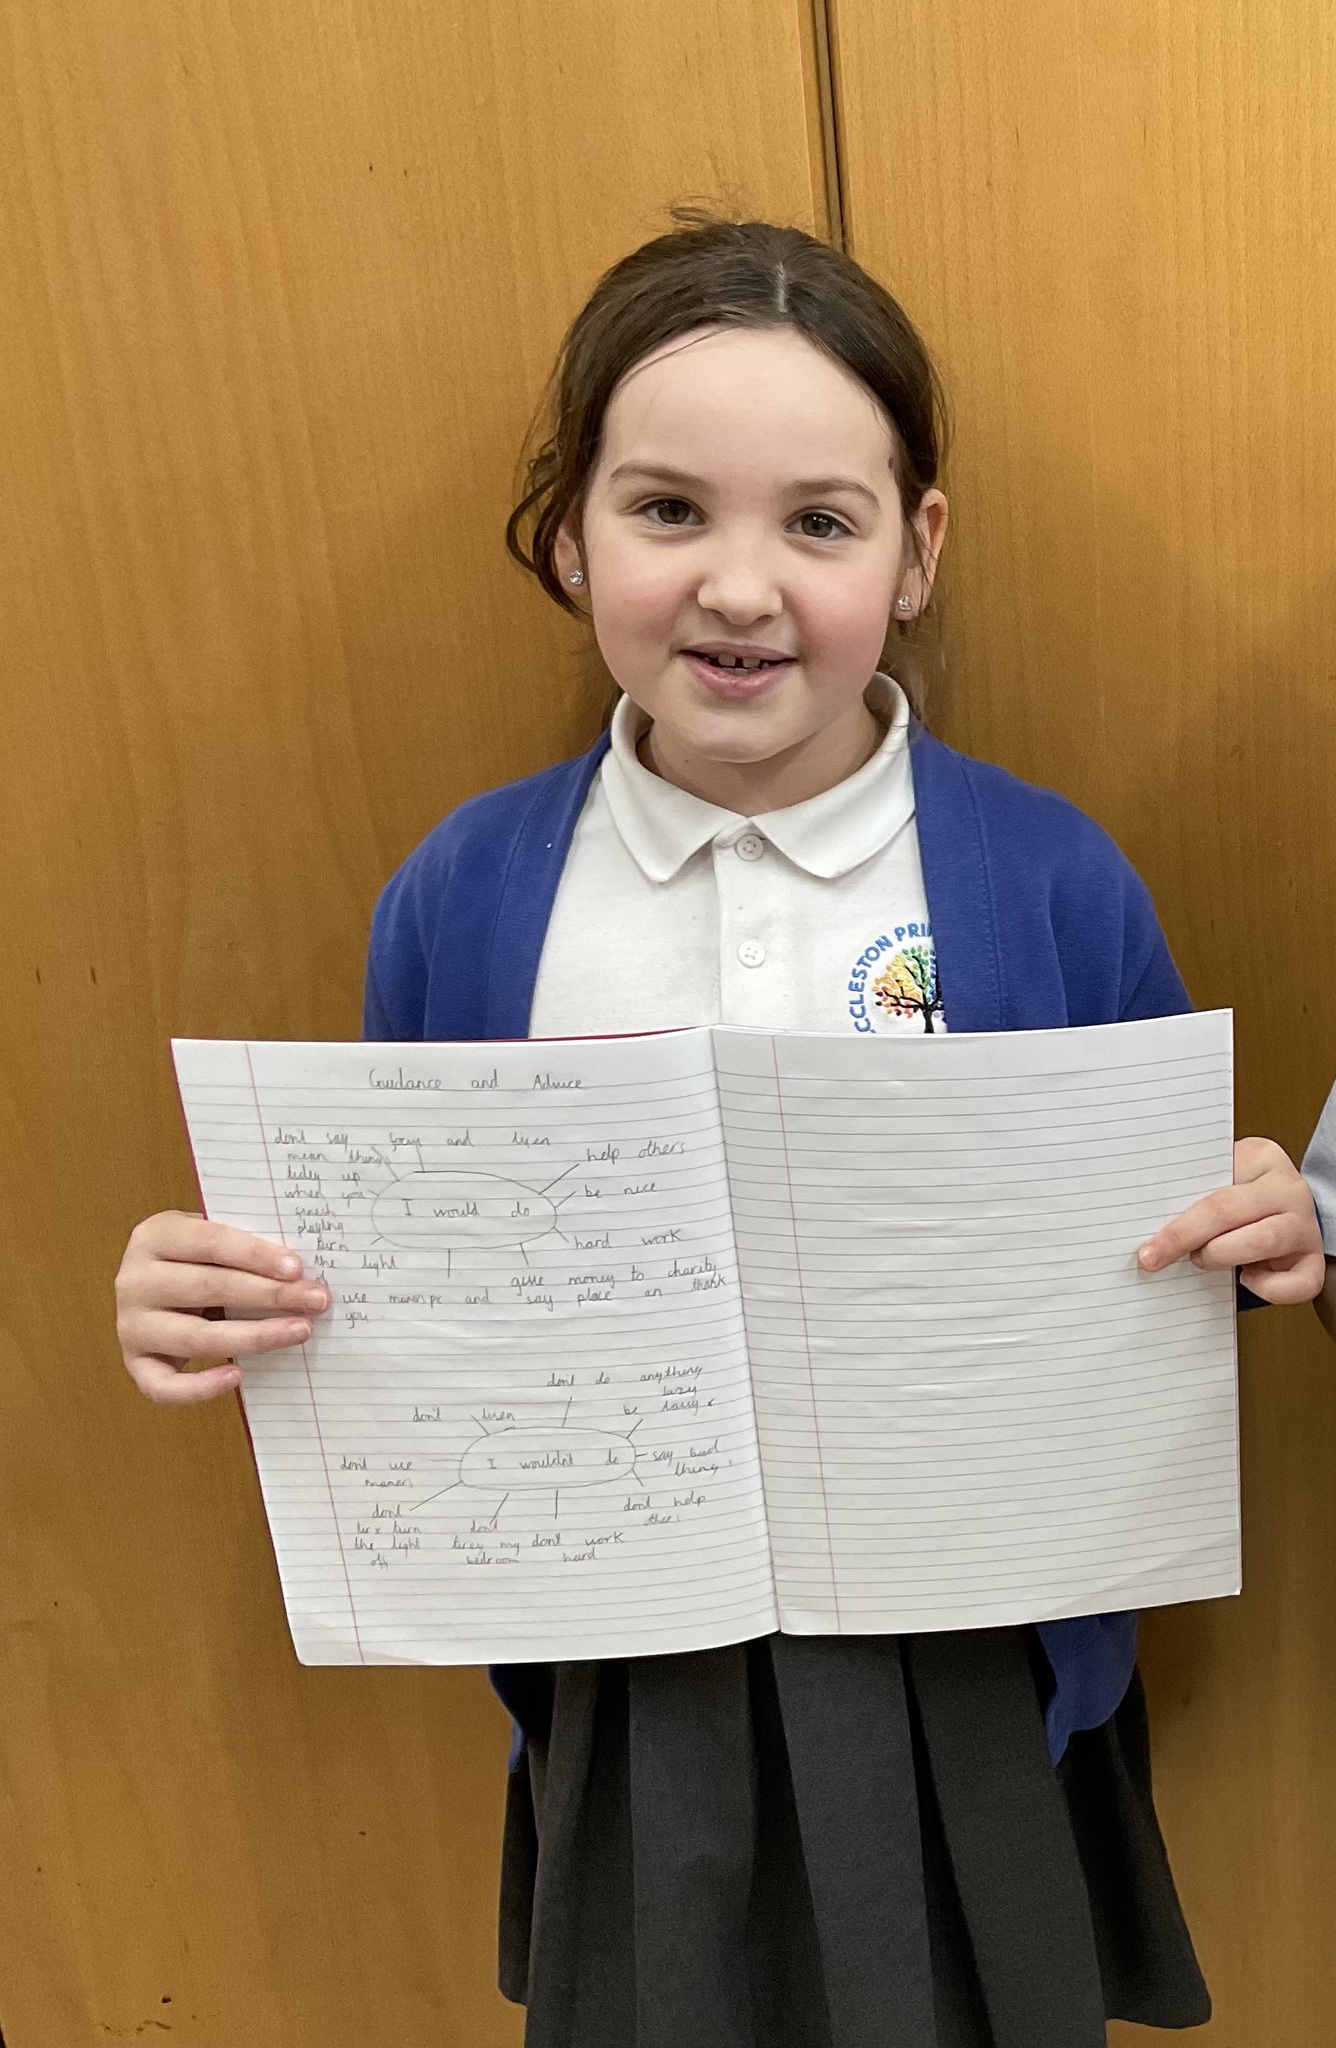 CCLESTON PRI
Guidance and Advice
dont say
mean things
focus and lisen
help others
tidey up
when you
be nice
I would do
playing
turn
the light
of
hard work
give money to charity
use and say place an thank
you
dont do anything
lazy
be
dont lisen
I wouldn't do
say bad
things
dont use
maners
dont help
others
dont
turn
the light
off
dont
tirey my
bedroom
dont work
hard